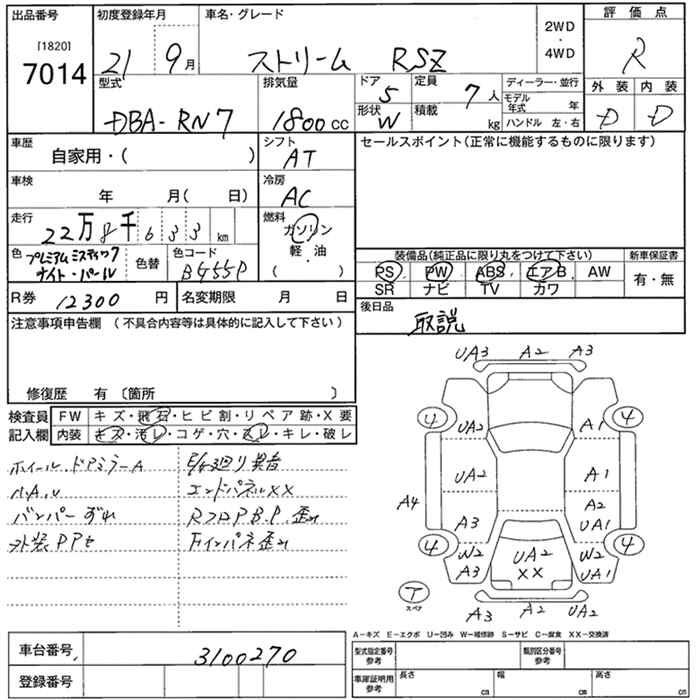 出品番号
[1820]
7014
初度登録年月
21 9月
車名・グレード
ストリーム RSZ
2WD
・
4WD
評価点
R
外装 内装
D D
型式
DBA-RN7
排気量
1800cc
ドア
5
定員
7人
形状
W
積載
kg
ディーラー・並行
モデル年式 年
ハンドル 左・右
車歴
自家用・( )
シフト
AT
セールスポイント(正常に機能するものに限ります)
車検
年 月( 日)
冷房
AC
走行
22万8千633km
燃料
ガソリン
軽・油
( ・ )
色
プレミアムミスティック
ナイト・パール
色替
色コード
B955P
装備品(純正品に限り丸をつけて下さい)
新車保証書
PS PW ABS エアB AW
SR ナビ TV カワ
有・無
R券
12300円
名変期限 月 日
後日品
取説
注意事項申告欄(不具合内容等は具体的に記入して下さい)
修復歴 有〔箇所 〕
検査員
記入欄
FW キズ・飛石・ヒビ割・リペア跡・X要
内装 キズ・汚レ・コゲ・穴・スレ・キレ・破レ
ホイール.ドアミラーA
バンパーずれ
エンドパネルXX
外装PPセ
UA3 A2 A3
4 4
UA2 A1
UA2 A1
A4 A3 A2
UA1
4 4
W2 UA2 W2
A3 XX UA1
T
スペア
A3 A2 UA2
A-キズ E-エクボ U-凹み W-補修跡 S-サビ C-腐食 XX-交換済
車台番号
3100270
登録番号
型式指定番号
参考
類別区分番号
参考
車庫証明用
参考
長さ cm
幅 cm
高さ cm